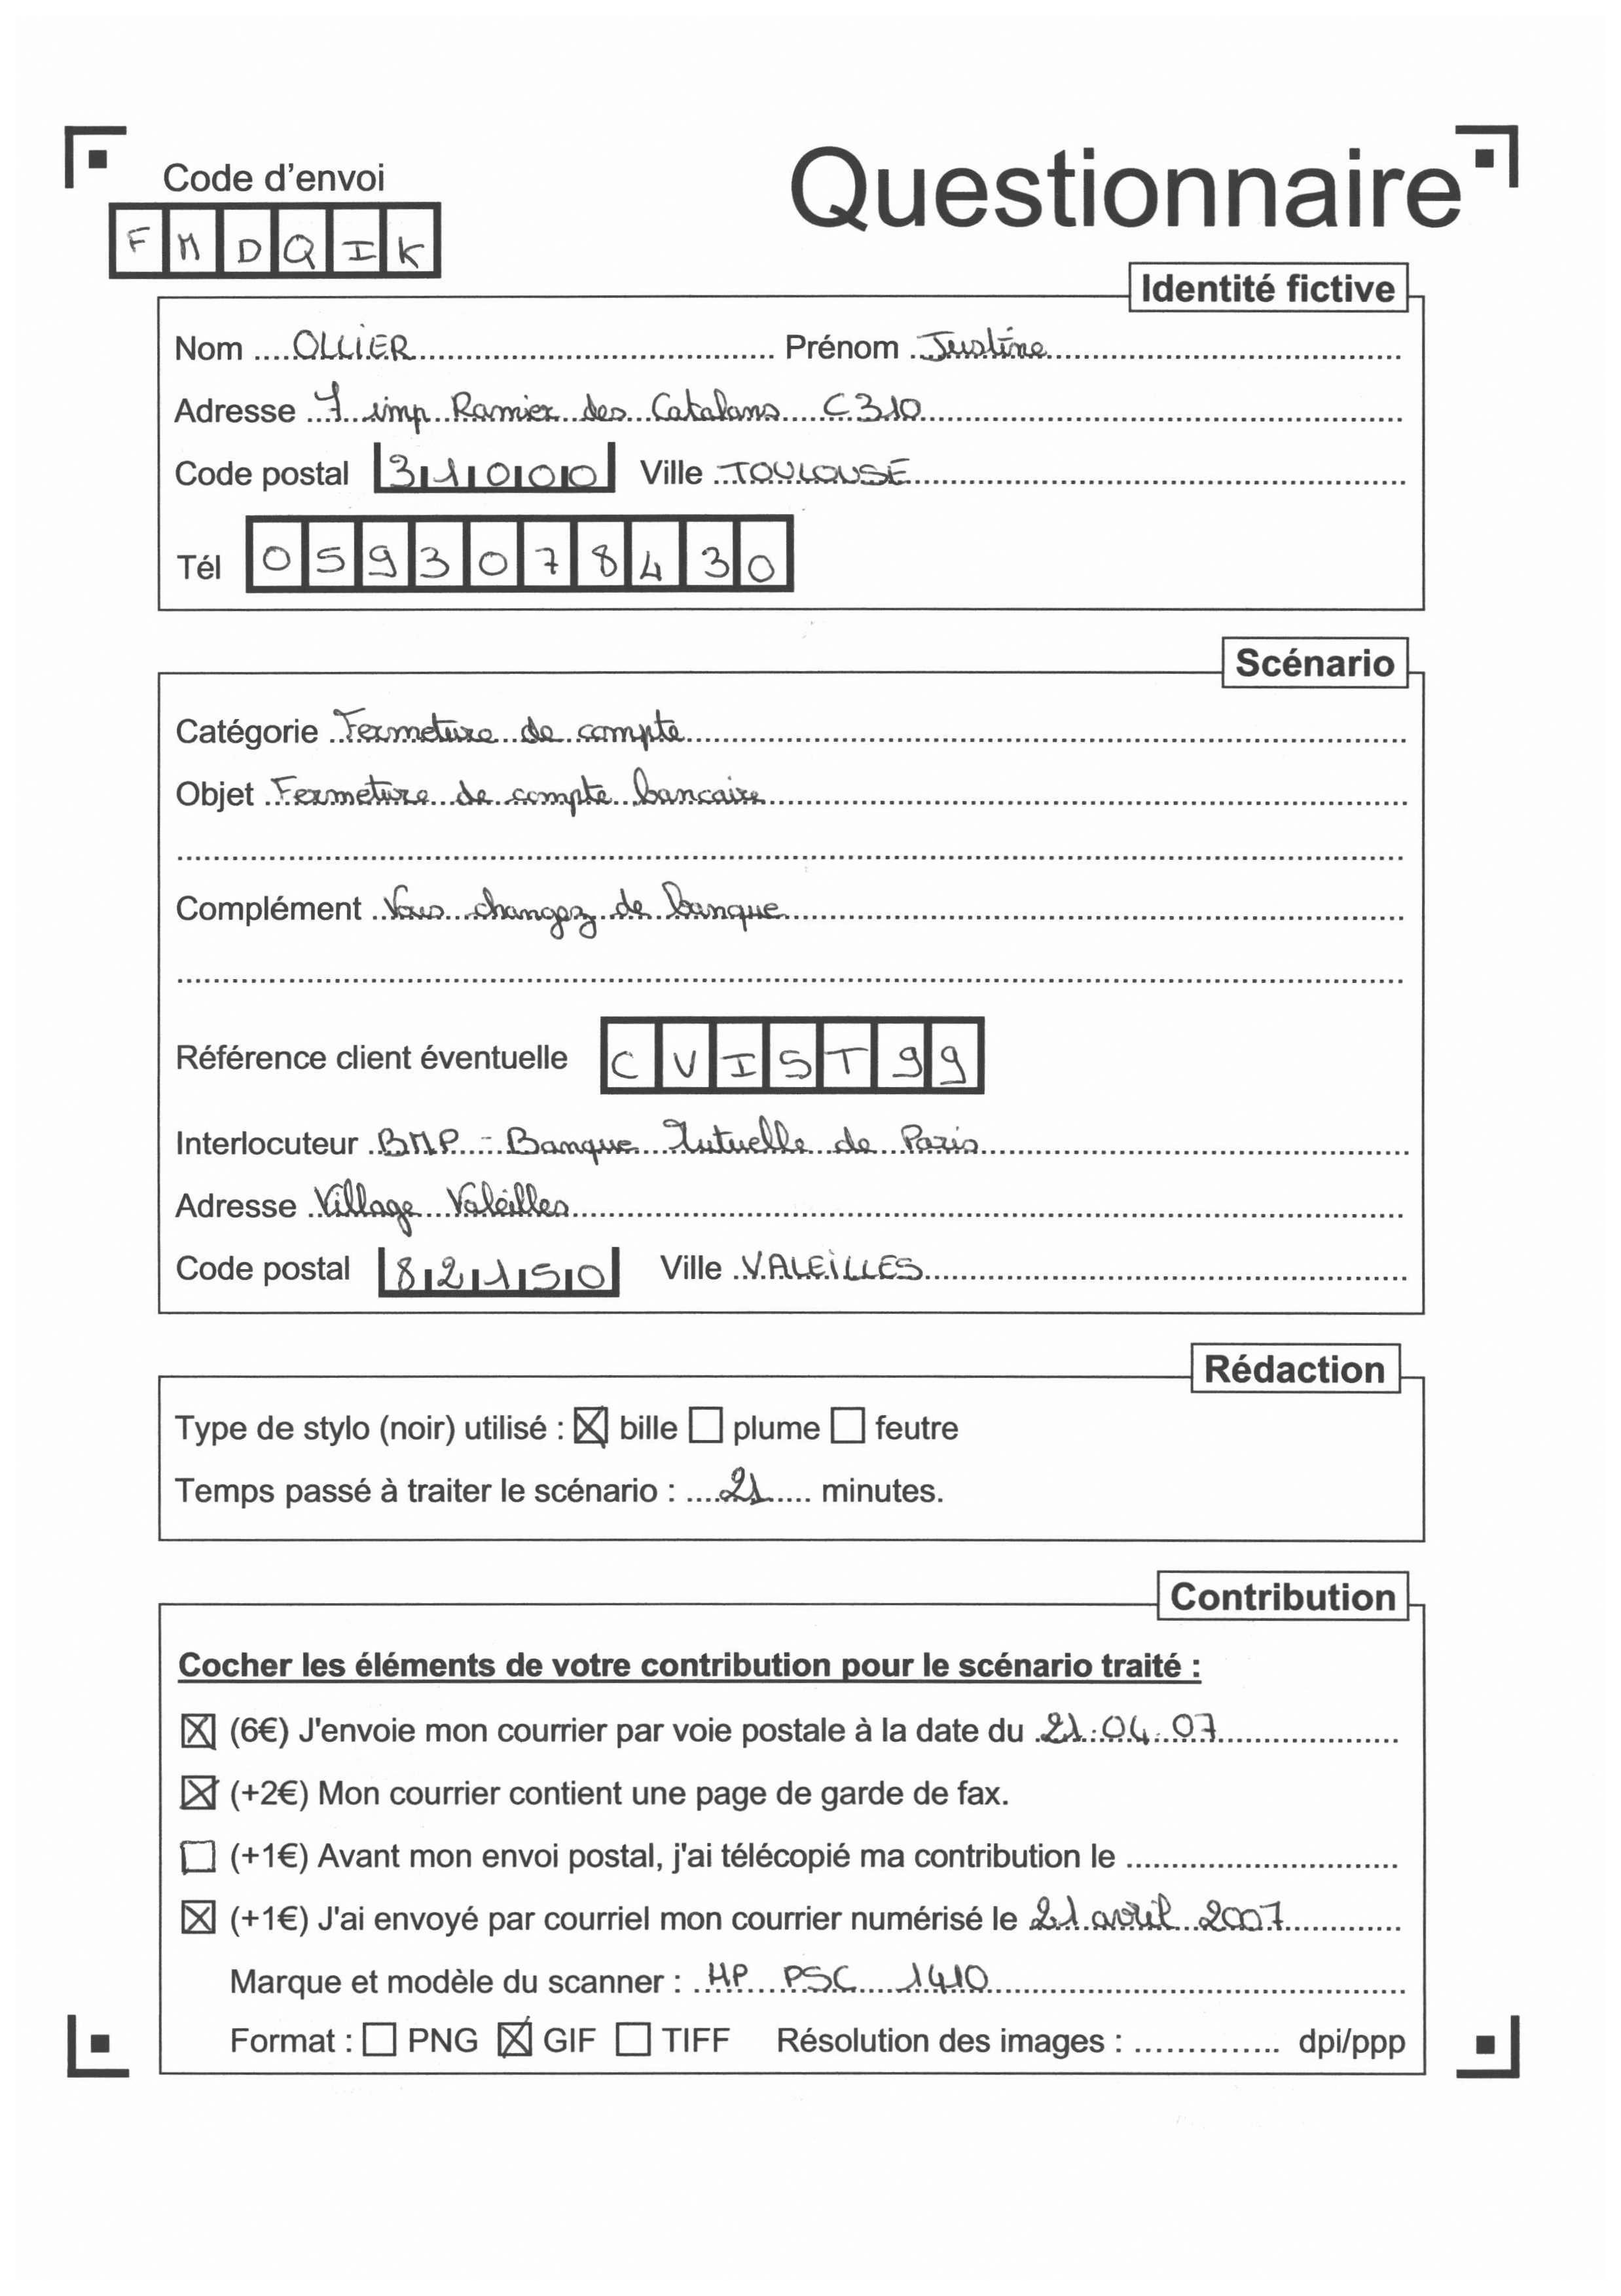 Code d'envoi
Questionnaire
FMDQIK
Identité fictive
Nom OLLIER Prénom Justine
Adresse 7 imp Ramier des Catalans C310
Code postal 31000 Ville TOULOUSE
Tél 0593078430
Scénario
Catégorie Fermeture de compte
Objet Fermeture de compte bancaire
Complément Vous changez de banque
Référence client éventuelle CVIST99
Interlocuteur BMP - Banque Mutuelle de Paris
Adresse Village Valeilles
Code postal 82150 Ville VALEILLES
Rédaction
Type de stylo (noir) utilisé : ☒ bille ☐ plume ☐ feutre
Temps passé à traiter le scénario : 21 minutes.
Contribution
Cocher les éléments de votre contribution pour le scénario traité :
☒ (6€) J'envoie mon courrier par voie postale à la date du 21.04.07
☒ (+2€) Mon courrier contient une page de garde de fax.
☐ (+1€) Avant mon envoi postal, j'ai télécopié ma contribution le
☒ (+1€) J'ai envoyé par courriel mon courrier numérisé le 21 avril 2007
Marque et modèle du scanner : HP PSC 1410
Format : ☐ PNG ☒ GIF ☐ TIFF Résolution des images : .............. dpi/ppp